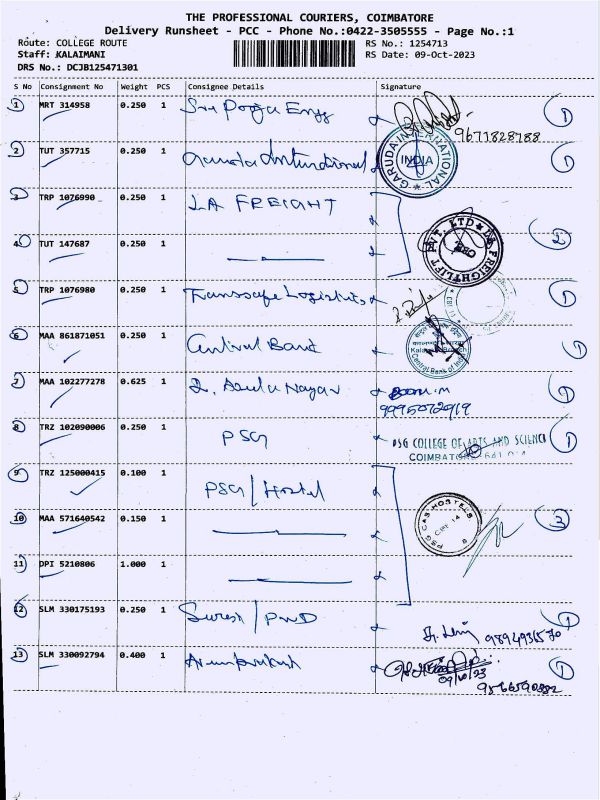 THE PROFESSIONAL COURIERS, COIMBATORE
Delivery Runsheet - PCC - Phone No.:0422-3505555 - Page No.:1
Route: COLLEGE ROUTE RS No.: 1254713
Staff: KALAIMANI RS Date: 09-Oct-2023
DRS No.: DCJB125471301
S No Consignment No Weight PCS Consignee Details Signature
1 MRT 314958 0.250 1 Sri Pooja Engg 1
9671828788
2 TUT 357715 0.250 1 Garuda International GARUDA INTERNATIONAL INDIA 1
3 TRP 1076990 0.250 1 LA FREIGHT
4 TUT 147687 0.250 1 FREIGHTLIFT PVT. LTD 2
5 TRP 1076980 0.250 1 Transsafe Logistics 1
6 MAA 861871051 0.250 1 Central Bank Central Bank of India 1
7 MAA 102277278 0.625 1 Nagar 1
8 TRZ 102090006 0.250 1 PSG PSG COLLEGE OF ARTS AND SCIENCE 1
COIMBATORE
9 TRZ 125000415 0.100 1 PSG/Hostel
10 MAA 571640542 0.150 1 PSG CAS HOSTELS CBE 14 3
11 DPI 5210806 1.000 1
12 SLM 330175193 0.250 1 Suresh/PWD 1
13 SLM 330092794 0.400 1 1
09/10/23